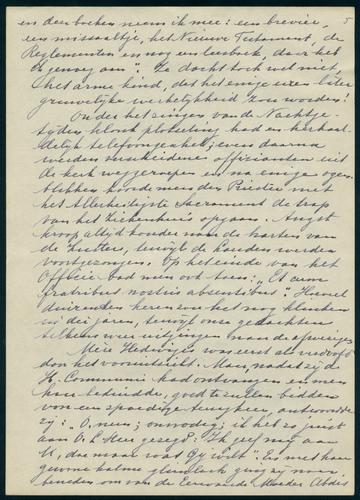 5
en den boeken neem ik mee: een brevier,
een missaaltje, het Nieuwe Testament, de
Reglementen en nog een leesboek, daar heb
ik genoeg aan". Ze dacht toch wel niet,
het arme kind, dat het enige uren later
gruwelijke werkelijkheid zou worden!
Onder het zingen van de Nachtge-
tijden klonk plotseling hard en herhaal-
delijk telefoongeraakel; even daarna
werden verscheidene officianten uit
de kerk weggeroepen en na enige ogen-
blikken hoorde men den Rector met
het Allerheiligste Sacrament de trap
van het Ziekenhuis opgaan. Angst
kroop altijd kouder naar de harten van
de Zusters, terwijl de Psalmen werden
voortgezongen. Op het einde van het
Officie bad men ook toen: "Et cum
fratribus nostris absentibus". Hoeveel
duizenden keren zou het nog klinken
in die jaren, terwijl onze gedachten
telkens weer uitgingen naar de afwezigen.
Mère Hedwigis was eerst als verdoofd
door het vooruitzicht. Maar, nadat zij de
H. Communie had ontvangen en men
haar beduidde, goed te zullen bidden
voor een spoedige terugkeer, antwoordde
zij: "O, neen; onnodig; ik heb zo juist
aan O. L. Heer gezegd: "Ik geef mij aan
U, doe maar wat Gij wilt". En met haar
gewone kalme glimlach ging zij naar
beneden om van de Eerwaarde Moeder Abdis